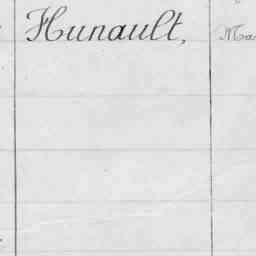 Hunault, Ma